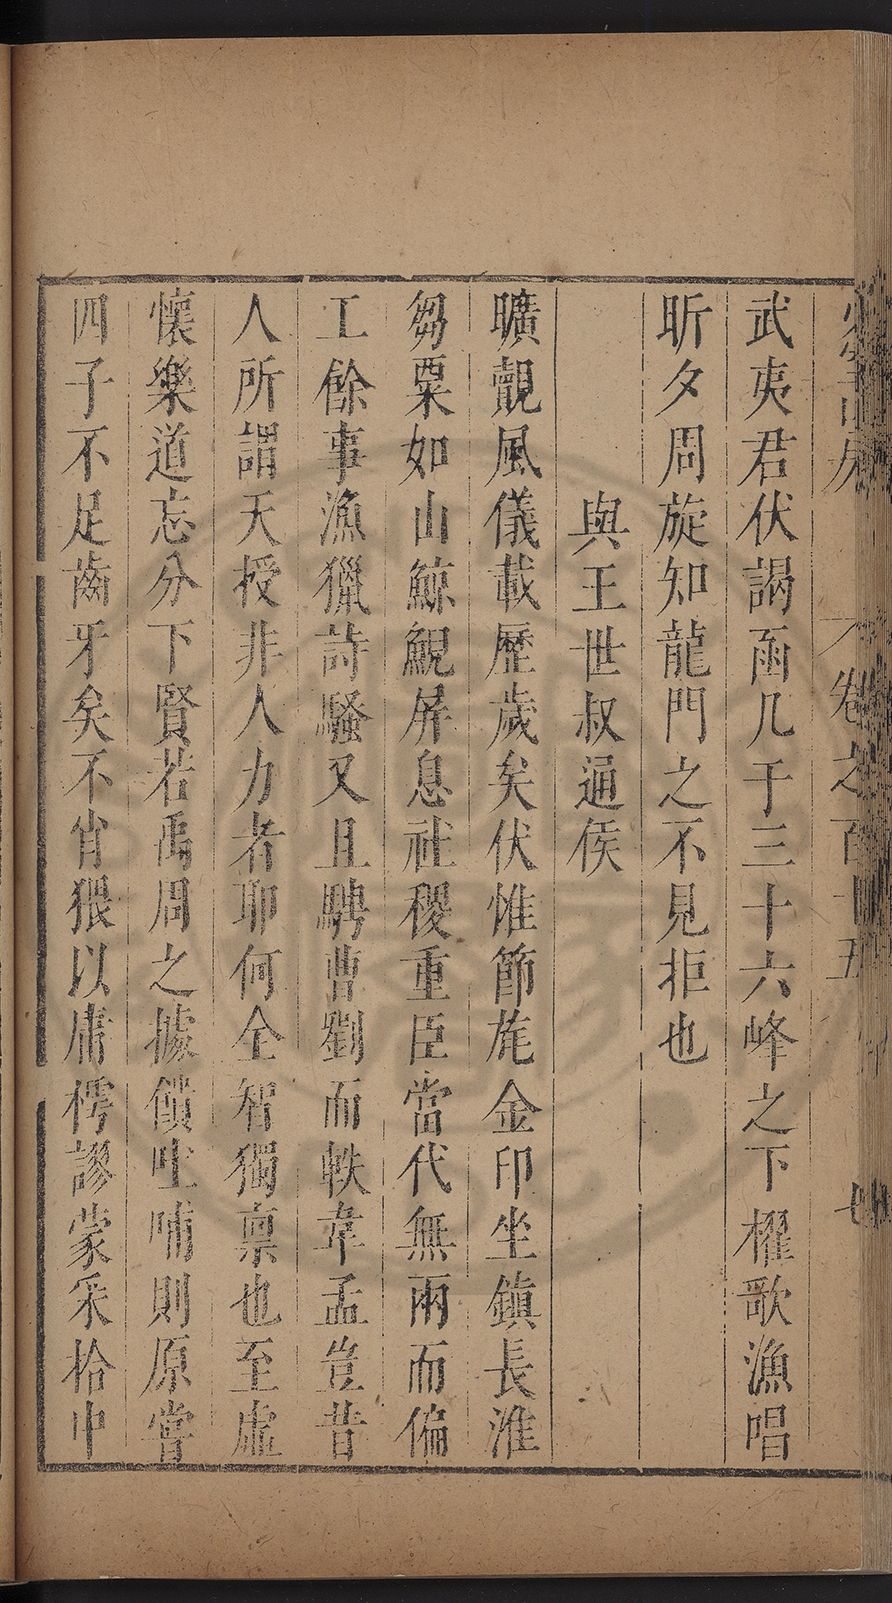 卷之百十五
武夷君伏謁函几于三十六峰之下櫂歌漁唱
昕夕周旋知龍門之不見拒也
與王世叔通侯
曠覿風儀載歷歲矣伏惟節旄金印坐鎮長淮
芻粟如山鯨鯢屏息社稷重臣當代無兩而偏
工餘事漁獵詩騷又且騁曹劉而軼韋孟豈昔
人所謂天授非人力者耶何全智獨禀也至虛
懷樂道忘分下賢若禹周之據饋吐哺則原嘗
四子不足齒牙矣不肖猥以庸樗謬蒙采拾中